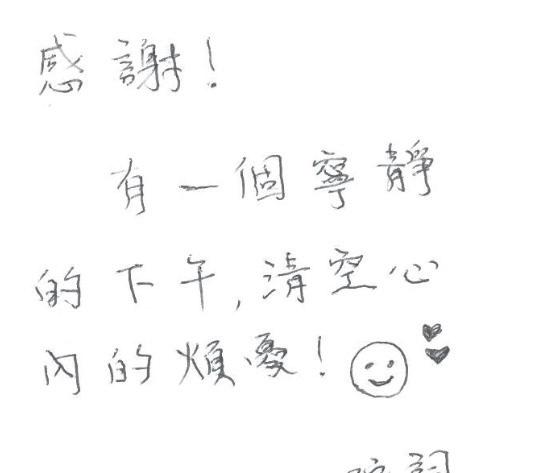 感謝!
有一個寧靜
的下午,清空心
內的煩憂!